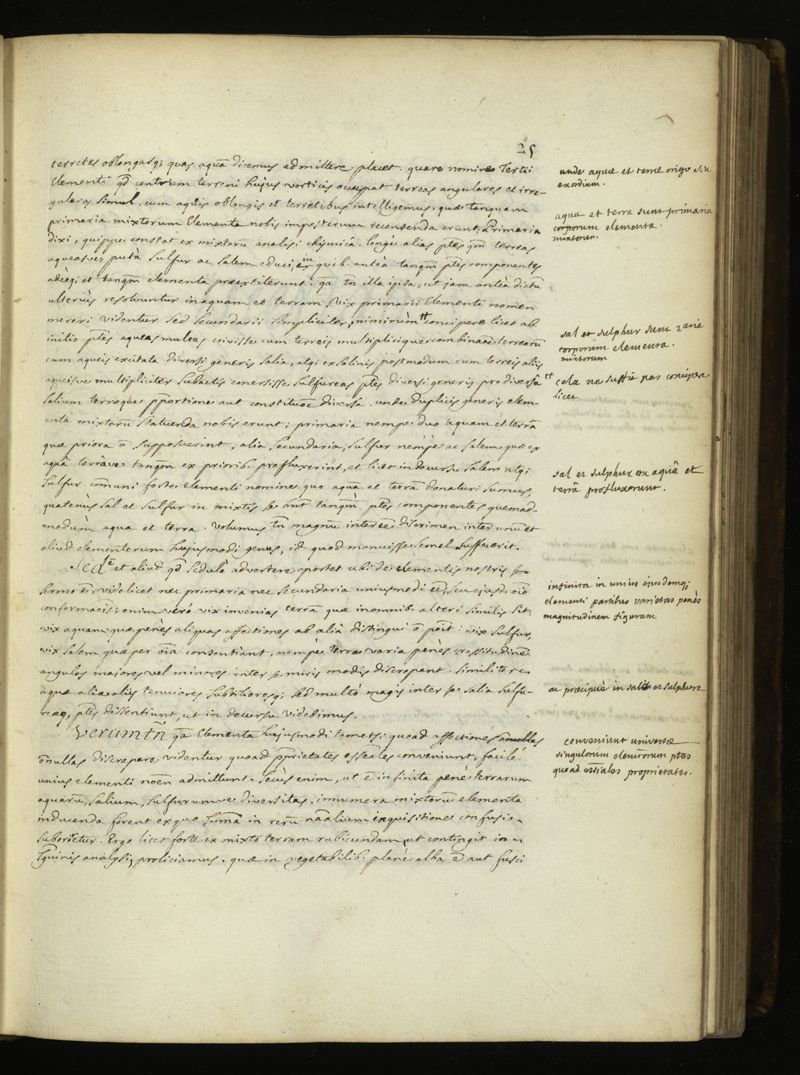 25
terretes oblongasq; quas aquã dicemus admittere placet. quare nomine Tertii
Elementi qd centrum terreni hujus vorticis occupat terreas angulares et irre-
gulares simul, cum aqueis oblongis et terretibus intelligemus, quæ tanquam
primaria mixtorum Elementa nobis imposterum recensenda erunt; Primaria
dixi, quippe constat ex mixtorũ analisi chymicâ. longe alias ptes qm terreas
aqueasve; putà sulfur ac salem educi, in quib. anteà tanqm ptes componentes
adeoq; et tanqm elementa præextiterunt. qa tn illa ipsa, ut jam anteà dictũ
ulterius resolvuntur in aquam et terram, vix primarii Elementi nomen
mereri videntur sed secundarii simpliciter, nimirùm concipere licet ab
initio ptes aqueas multas coivisse cum terreis multipliciqueve combinaoe terrearũ
cum aqueis excitata diversi generis salia, alqi ex salinis postmodum cum terreis aliis
aqueisve multipliciter subactis emersisse sulfureas ptes diversi generis pro diversâ
salium terræque pportione aut constituoe diversâ. unde duplicis generis elem-
enta mixtorũ statuenda nobis erunt; primaria nempe duo aquam et terrã
quæ priora õ supposuerint, alia secundaria, sulfur nempe ac salem quæ ex
aquâ terrâve tanqm ex priorib; profluxerint, et licet in decursu salem alqi
sulfur comuni forte elementi nomine quo aquã et terrã donaturi sumus,
quatenùs sal et sulfur in mixtis se ont tanqm ptes componentes quemad-
modùm aqua et terra. Volumus tn magnũ interee discrimen inter unũ et
aliud elementorum hujusmodi genus, id quod monuisse semel suffecerit.
Sed et aliud qd sedulò advertere oportet ubi de elementis nostris se-
rmo est videlicet nec primaria nec secundaria uniusmodi ee, seu ejusd. oio
conformaois; enim vero vix invenias terrã quæ in omnib. alteri similis sit;
vix aquam quæ penès aliquas affectiones ab aliâ distingui õ poit: vix sulfur,
vix salem quæ per oia consentiant, nempè terræ varia penès crassitudinẽ
angulos majores, vel minores inter se miris modis discrepant. similiter
aquæ aliæ aliis tenuiores subtilioresq; sed multò magis inter se salia sulfu-
reaq; ptes dissentiunt, ut in decursu videbimus.
Verumtn qa elementa hujusmodi tametsi quoad affectiones õnullas
õnullas discrepare videntur quoad pprietates essẽales conveniunt, facilè
unius elementi noen admittunt. secùs enim, ut ẽ infinita penè terrarum
aquarũ, salium, sulfurumve diversitas, innumera mixtorũ elementa
inducenda forent ex quo suma in rerũ nãalium exquisitione confusio
suboriretur. Ergo licet forte ex mixto terram rubicundam, ut contingit in
sguinis analysi, proliciamus. quæ in vegetabilib. planè alba ẽ aut fusci
unde aquæ et terræ origo seu
exordium.
aqua et terra sunt primaria
corporum elementa.
mixtorum.
sal et sulphur sunt 2aria
corporum elementa.
mixtorum
cela ne suffit pas concipere
licet
sal et sulphur ex aquâ et
terrâ profluxerunt.
infinita in unius ejusdemq;
elementi partibus varietas penès
magnitudinem figuram
ac præcipuè in sale ac sulphure
conveniunt universæ
singulorum elemtorum ptes
quoad essẽiales proprietates.